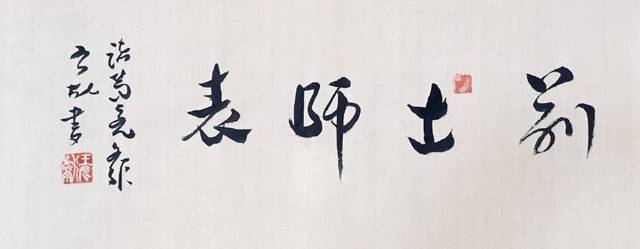 前出師表
諸葛亮
書